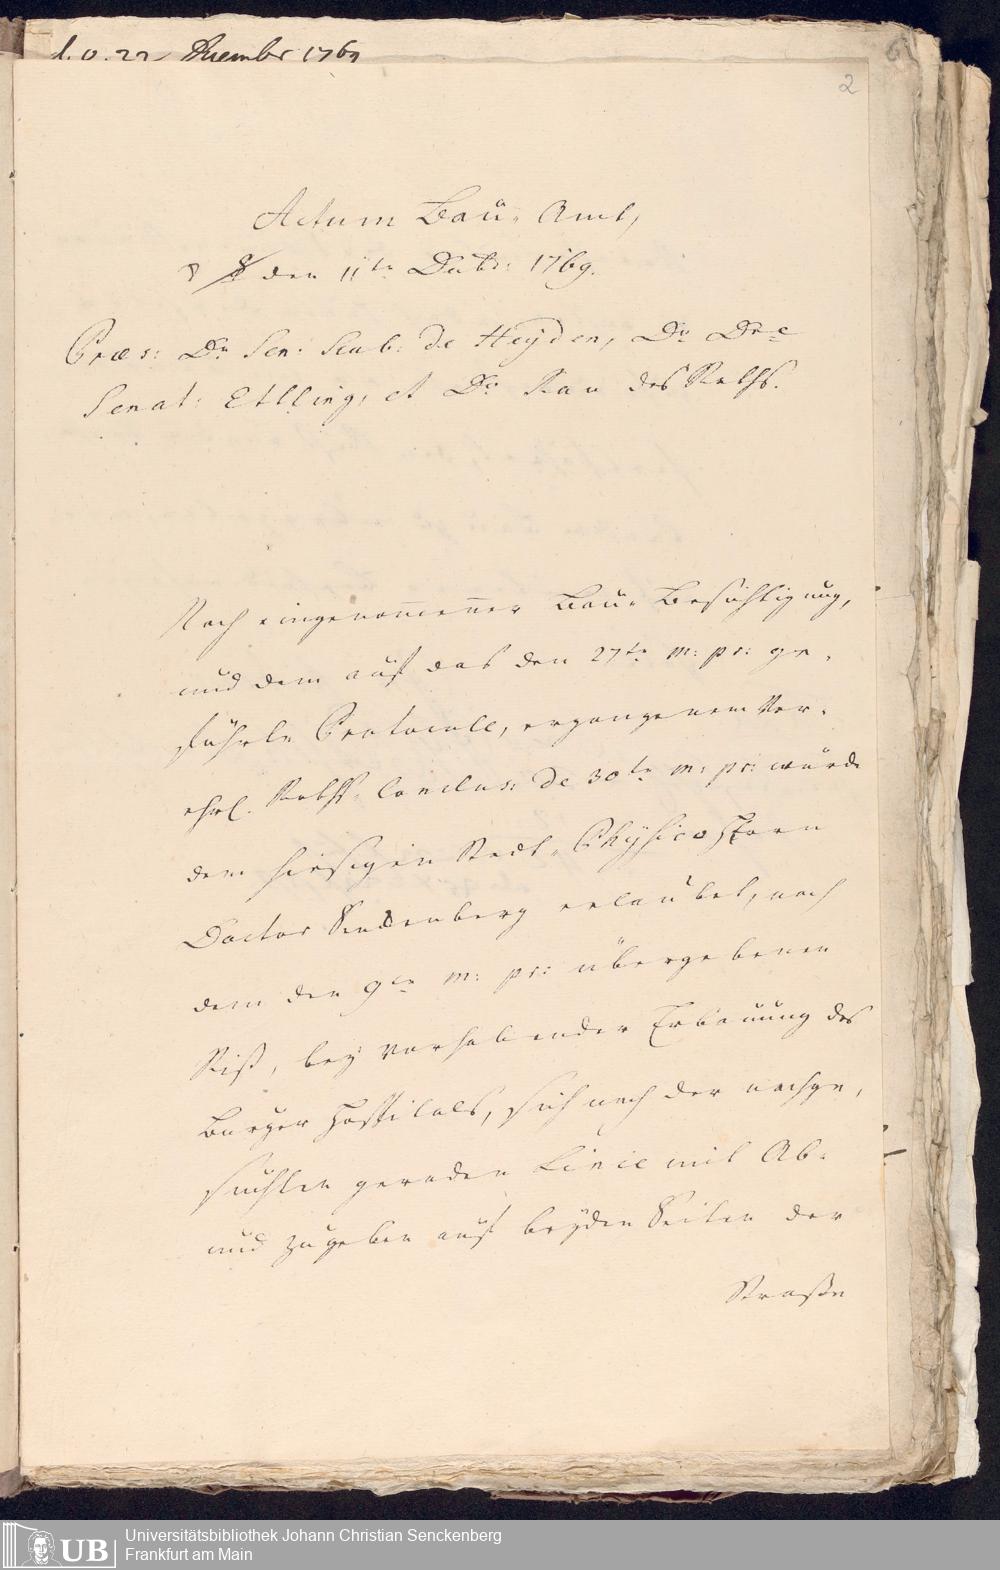 d. d. 22 Decembr 1769
2
Actum Bau-Amt,
den 11ten Decbr: 1769.
Præs: Dn Sen: Scab: de Heyden, Dn Dre
Senat: Ettling, et Dn Rau des Raths.
Nach eingenom̄ener Bau-Besichtigung,
und dem auf das den 27ten m: pr: ge-
führte Protocoll, ergangenem Ver-
ehrl. Raths-Conclus: de 30ten m: pr: wurde
dem hiesigen Stadt-Physico Herrn
Doctor Senckenberg erlaubet, nach
dem den 9ten m: pr: übergebenen
Riß, bey vorhabender Erbauung des
Burger Hospitals, sich nach der nachge-
suchten geraden Linie mit Ab-
und zugeben auf beyden Seiten der
Straße
UB
Universitätsbibliothek Johann Christian Senckenberg
Frankfurt am Main